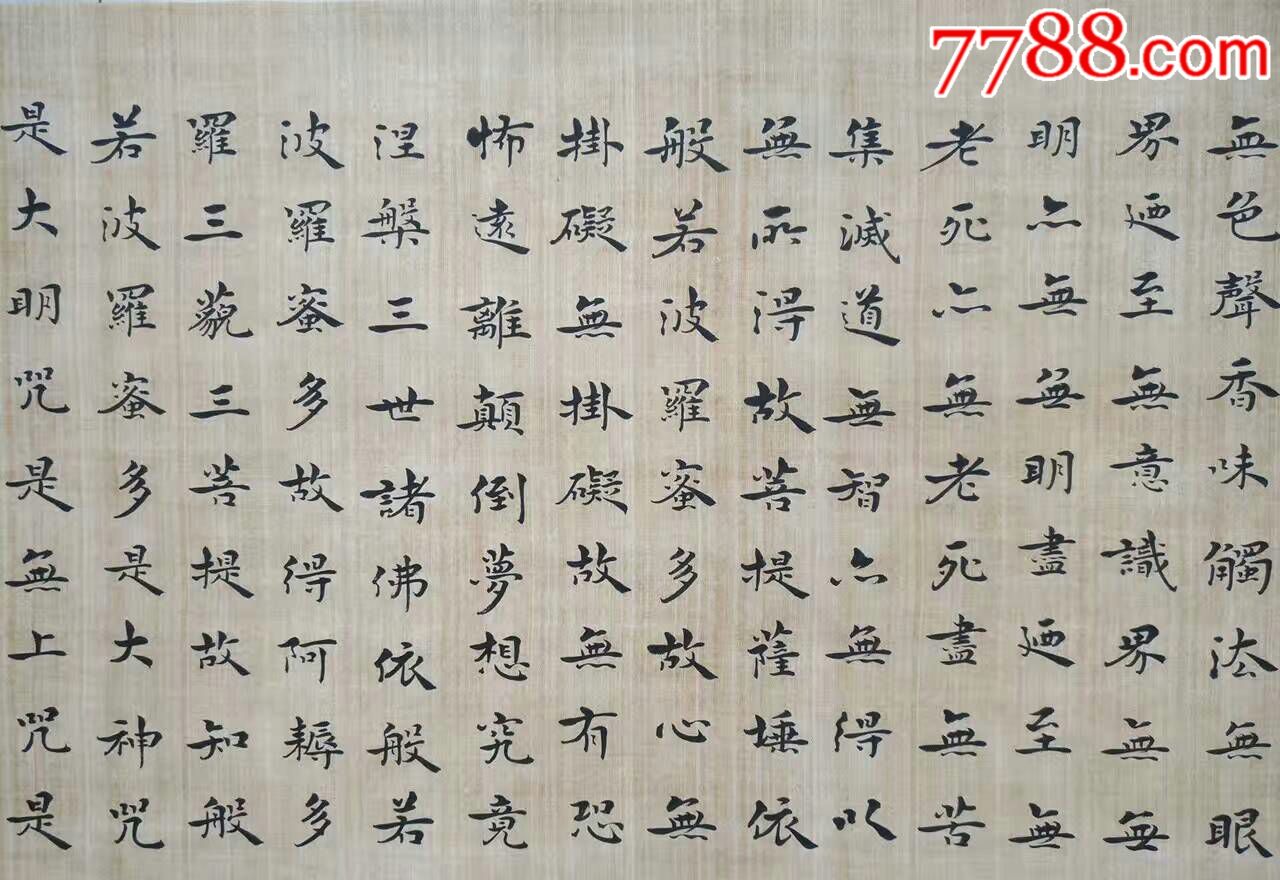 7788.com
無色聲香味觸法無眼
界迺至無意識界無無
明亦無無明盡迺至無
老死亦無老死盡無苦
集滅道無智亦無得以
無所得故菩提薩埵依
般若波羅蜜多故心無
掛礙無掛礙故無有恐
怖遠離顛倒夢想究竟
涅槃三世諸佛依般若
波羅蜜多故得阿耨多
羅三藐三菩提故知般
若波羅蜜多是大神咒
是大明咒是無上咒是